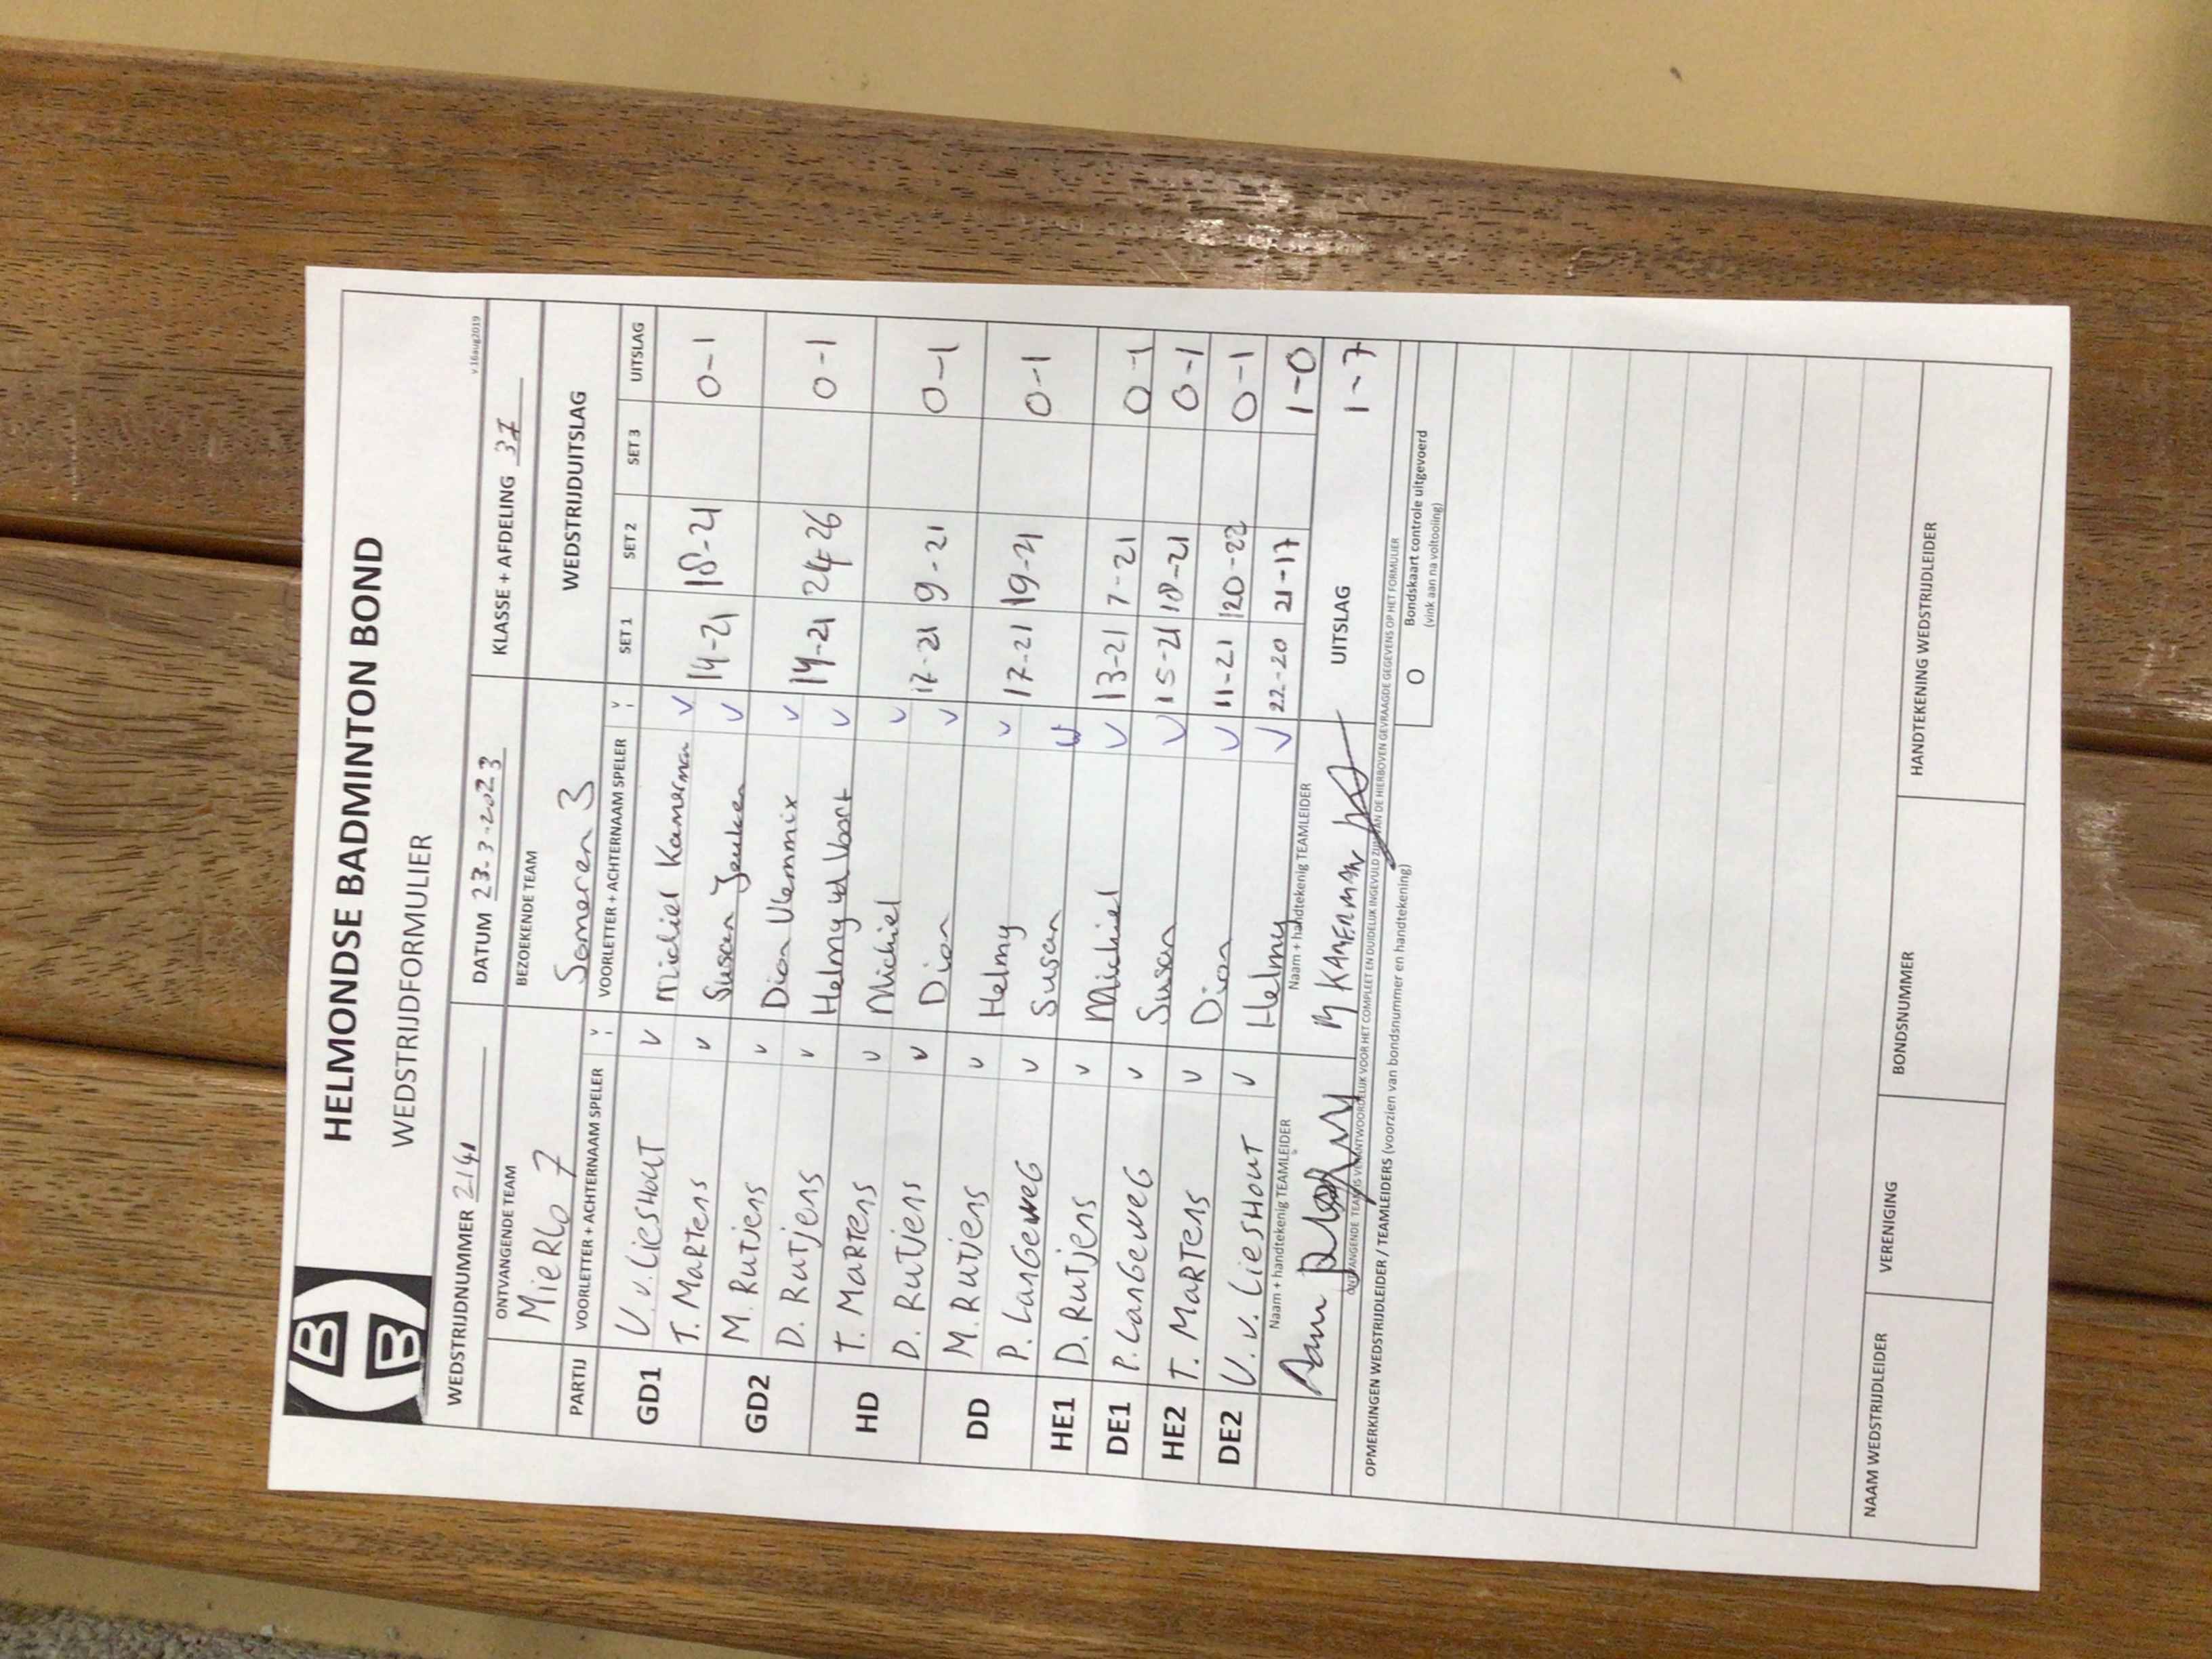 HB
B
HELMONDSE BADMINTON BOND
WEDSTRIJDFORMULIER
v.16aug2019
WEDSTRIJDNUMMER 2141 DATUM 23-3-2023 KLASSE + AFDELING 37
ONTVANGENDE TEAM BEZOEKENDE TEAM WEDSTRIJDUITSLAG
MieRLo 7 Someren 3
PARTIJ VOORLETTER + ACHTERNAAM SPELER V VOORLETTER + ACHTERNAAM SPELER V SET 1 SET 2 SET 3 UITSLAG
GD1 V. v. LiesHouT v Michiel Kamerman v 14-21 18-21 0-1
T. MaRTens v Susan v
GD2 M. RuTjens v Dion Vlemmix v 14-21 24-26 0-1
D. RuTjens v Helmy vd Voort v
HD T. MaRTens v Michiel v 17-21 9-21 0-1
D. RuTjens v Dion v
DD M. RuTjens v Helmy v 17-21 19-21 0-1
P. LanGeweG v Susan v
HE1 D. RuTjens v Michiel v 13-21 7-21 0-1
DE1 P. LanGeweG v Susan v 15-21 18-21 0-1
HE2 T. MaRTens v Dion v 11-21 20-22 0-1
DE2 V. v. LiesHouT v Helmy v 22-20 21-17 1-0
Naam + handtekenig TEAMLEIDER Naam + handtekenig TEAMLEIDER
M KAMERMAN UITSLAG 1-7
ONTVANGENDE TEAM IS VERANTWOORDELIJK VOOR HET COMPLEET EN DUIDELIJK INGEVULD ZIJN VAN DE HIERBOVEN GEVRAAGDE GEGEVENS OP HET FORMULIER
OPMERKINGEN WEDSTRIJDLEIDER / TEAMLEIDERS (voorzien van bondsnummer en handtekening)
O Bondskaart controle uitgevoerd
(vink aan na voltooiing)
NAAM WEDSTRIJDLEIDER VERENIGING BONDSNUMMER HANDTEKENING WEDSTRIJDLEIDER